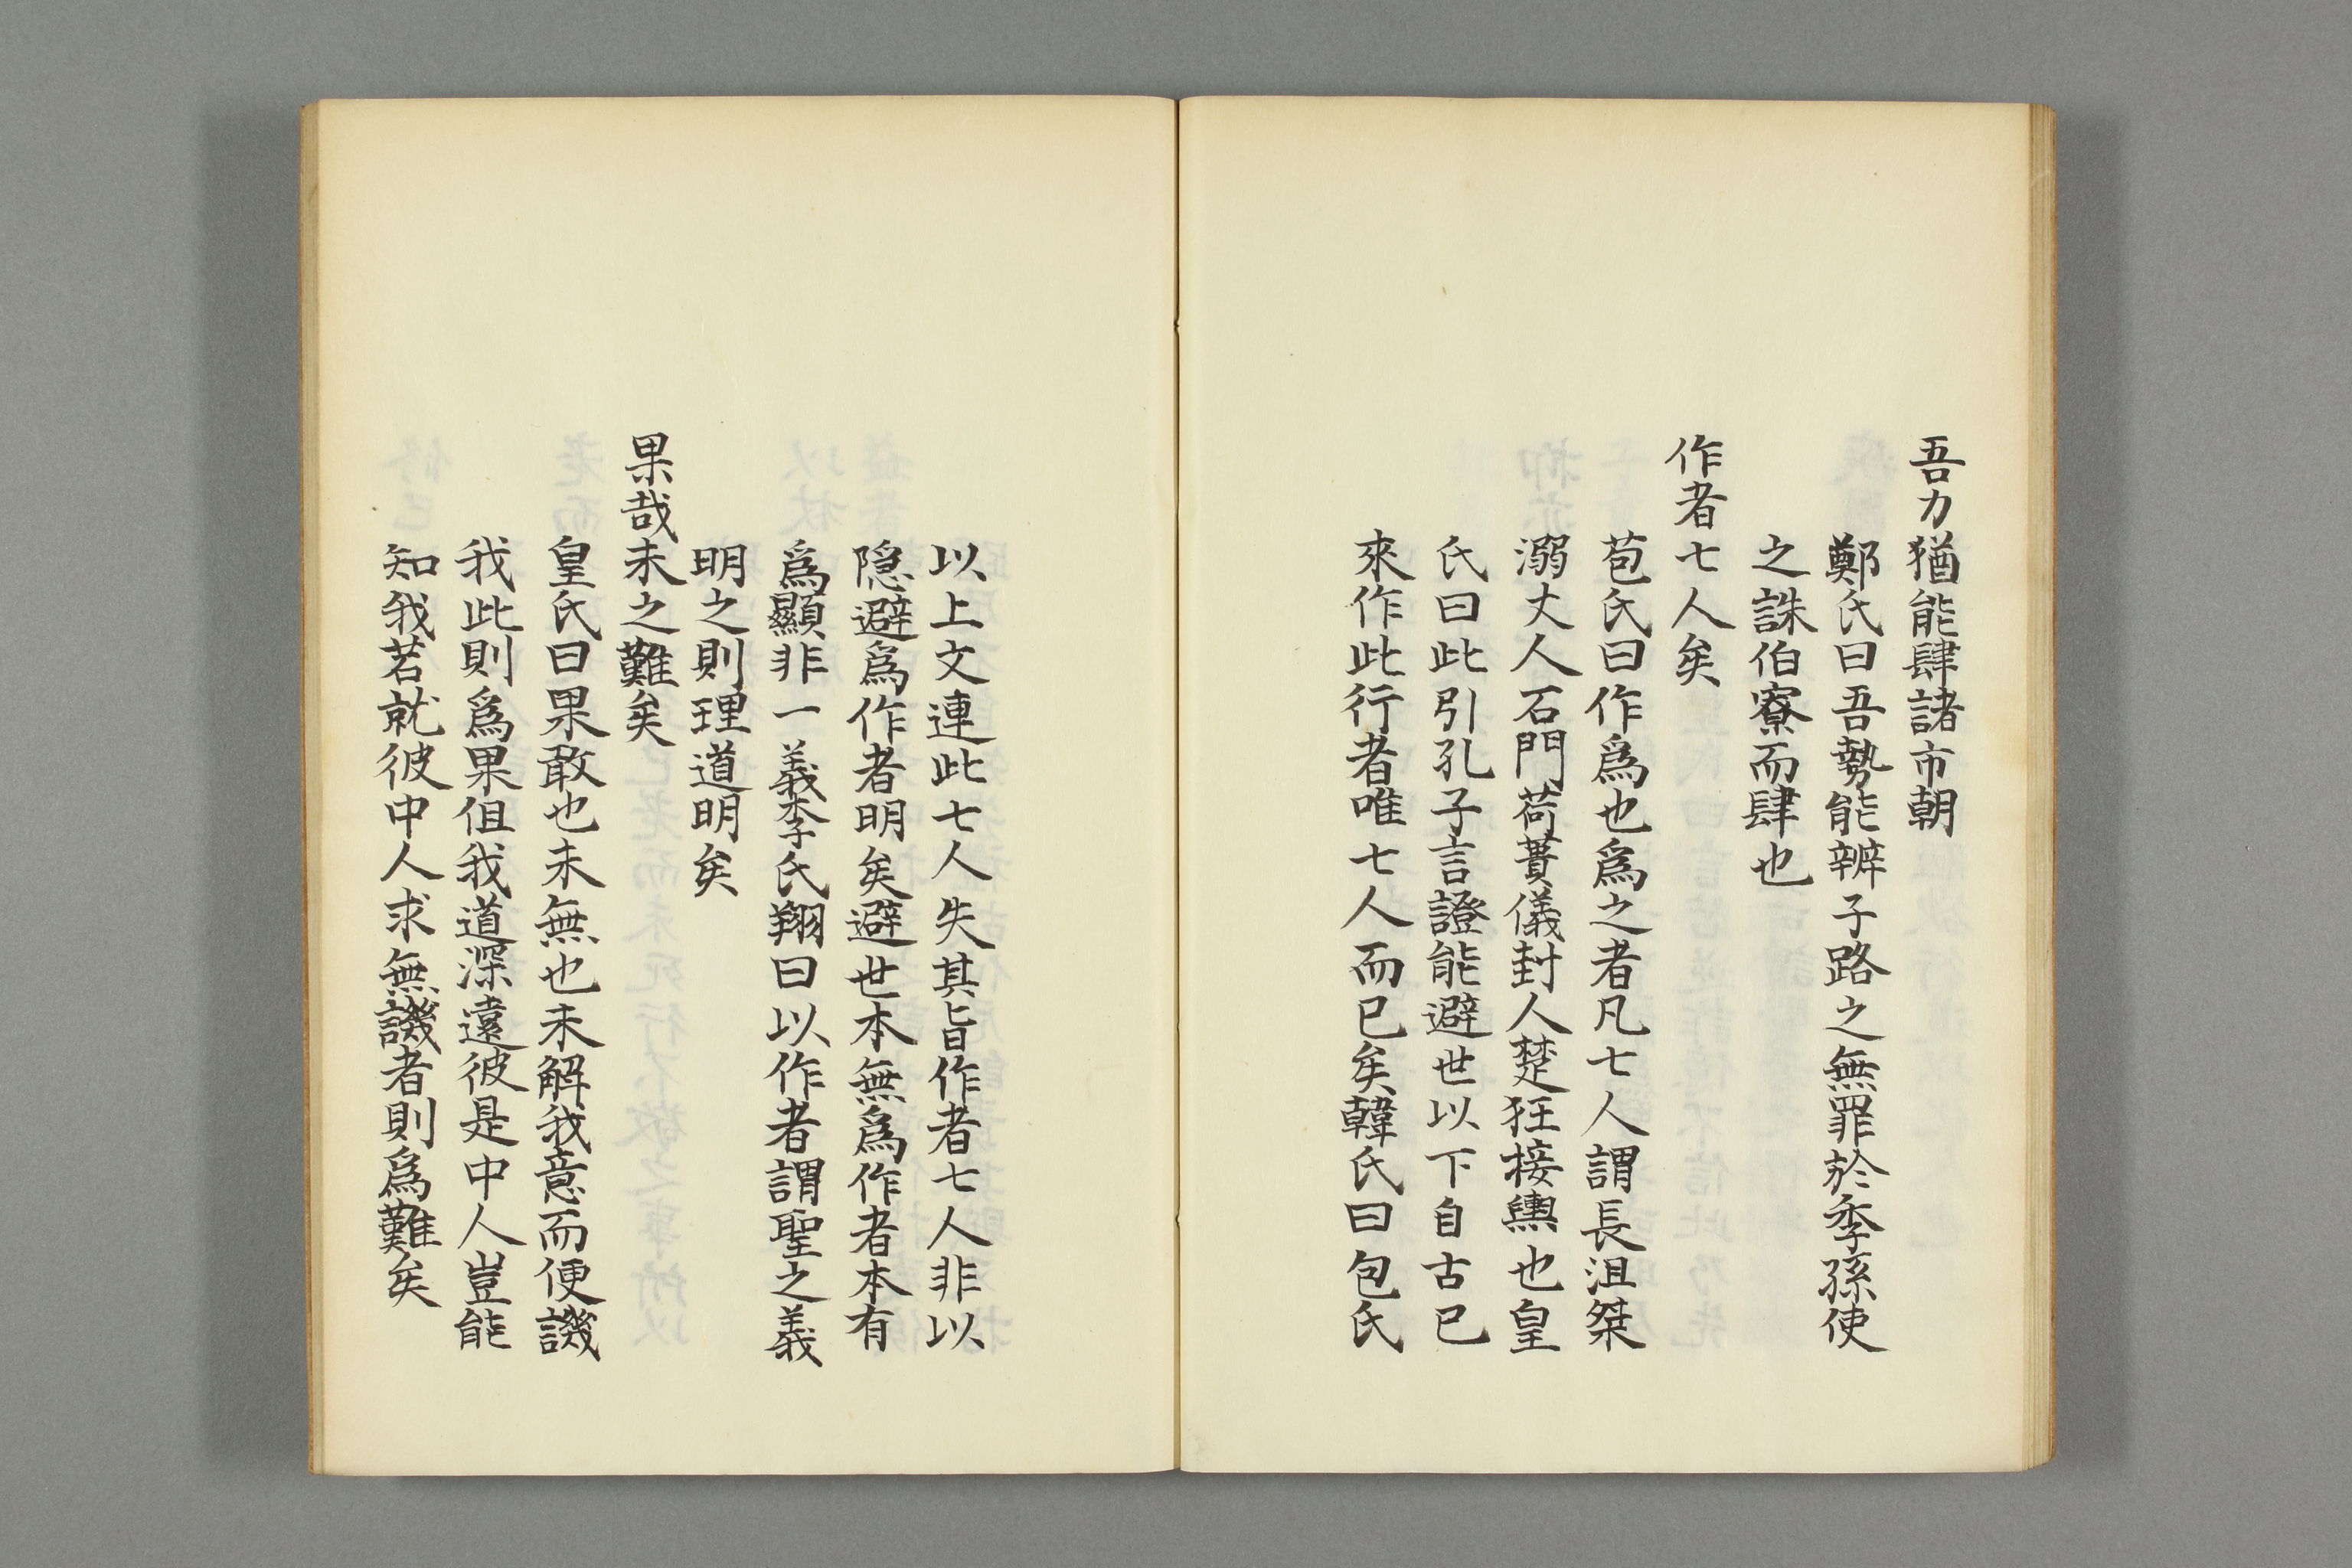 吾力猶能肆諸市朝
鄭氏曰吾勢能辨子路之無罪於季孫使
之誅伯寮而肆也
作者七人矣
苞氏曰作爲也爲之者凡七人謂長沮桀
溺丈人石門荷蕢儀封人楚狂接輿也皇
氏曰此引孔子言證能避世以下自古已
來作此行者唯七人而已矣韓氏曰包氏
以上文連此七人失其旨作者七人非以
隐避爲作者明矣避世本無爲作者本有
爲顯非一義李氏翔曰以作者謂聖之義
明之則理道明矣
果哉末之難矣
皇氏曰果敢也未無也未解我意而便譏
我此則爲果但我道深遠彼是中人豈能
知我若就彼中人求無譏者則爲難矣